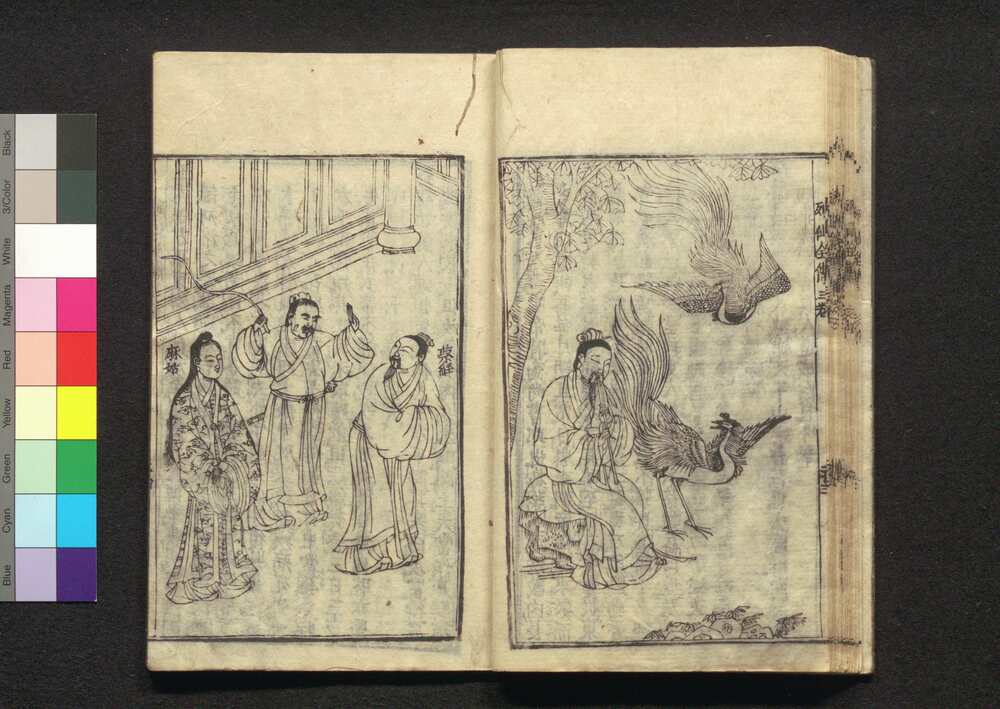 列仙全傳三卷
蔡經
麻姑
Black
3/Color
White
Magenta
Red
Yellow
Green
Cyan
Blue